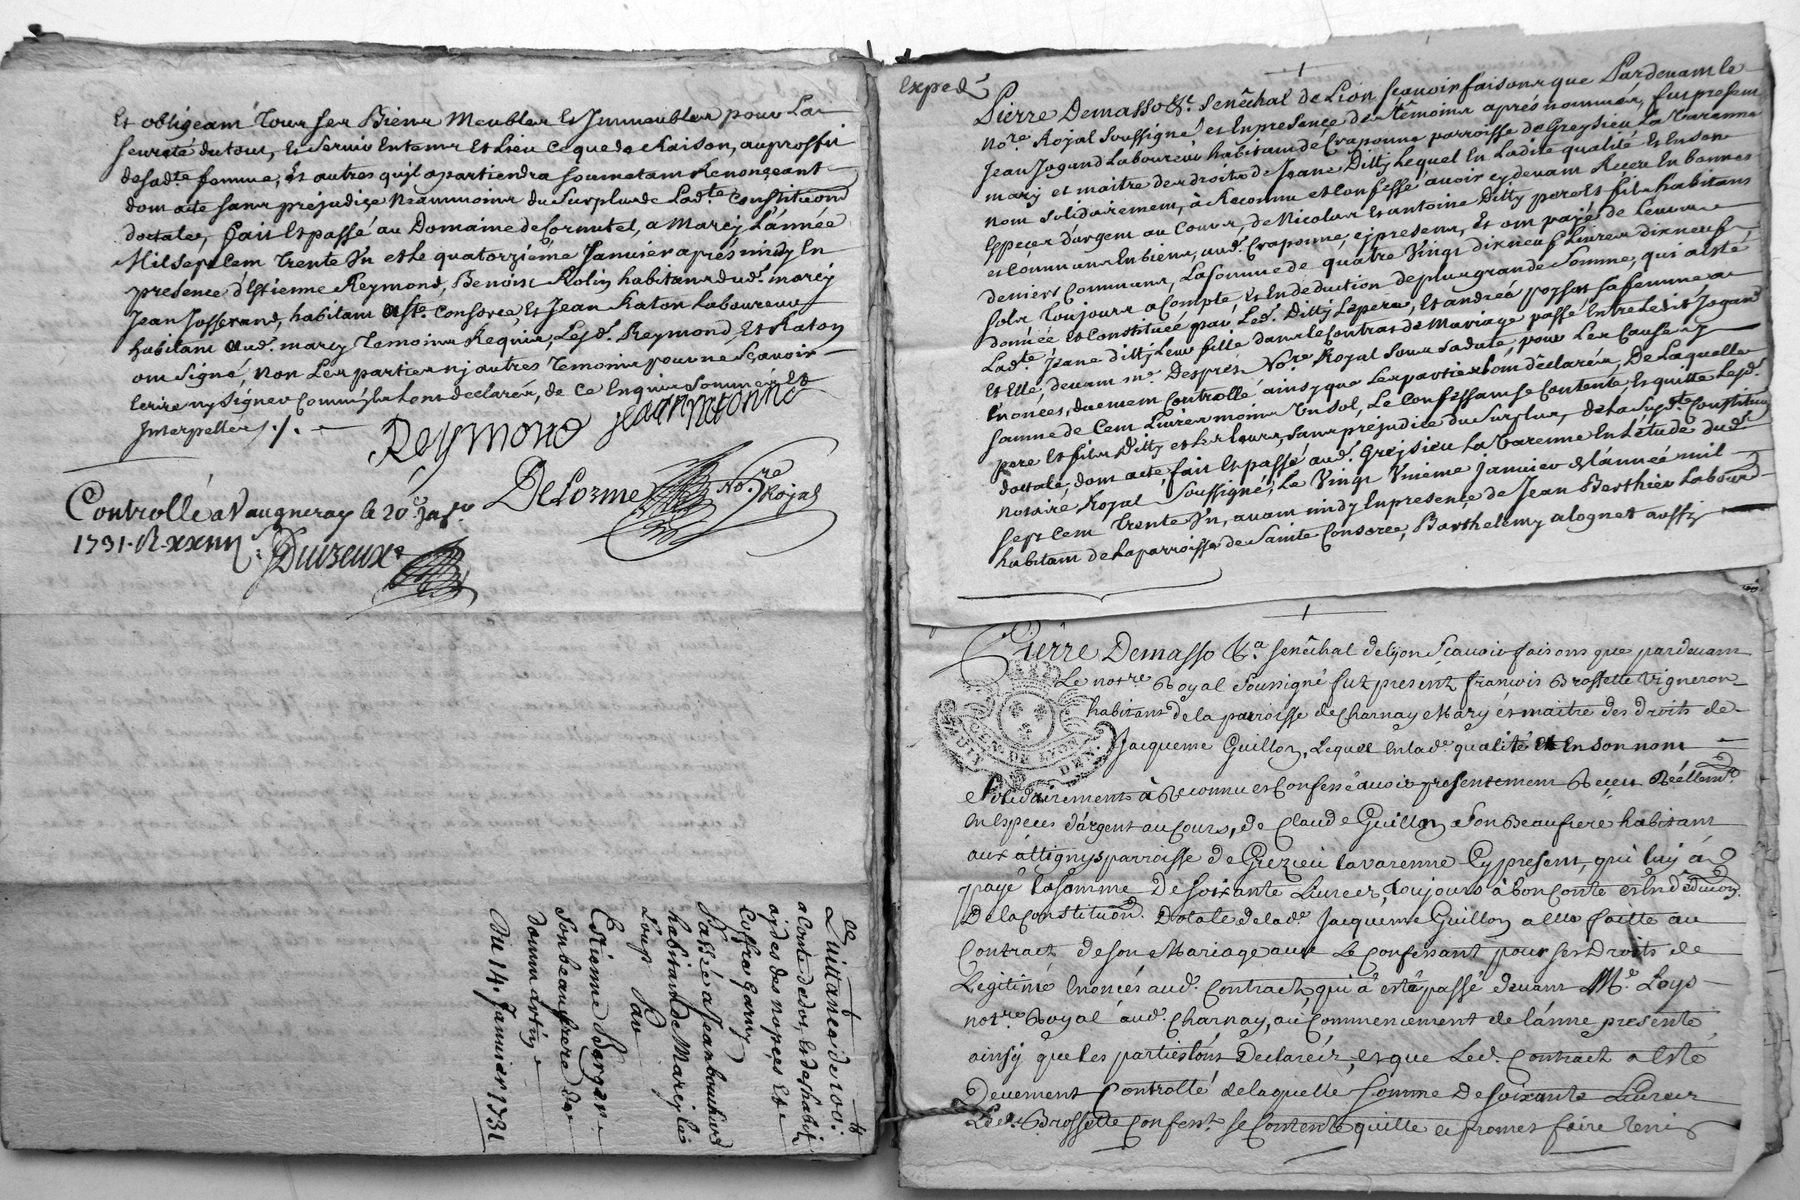 Et obligeant Tous ses Biens Meubles Et Immeubles pour La
seureté du tout, Et Servir En tems Et Lieu Ce que de Raison, au proffit
de sad.te femme, Et autres qu'il apartiendra soumetant Renonçeant
dont acte sans préjudize Neanmoins du Surplus de Lad.te Constitu͠on
doctale, fait Et passé au Domaine de Cornutel, a Marcy L'année
Mil sept Cent Trente Un et Le quatorziéme Janvier aprés midy En
presence d'Estienne Reymond, Benoist Rolin habitans dud. marcy
Jean Josserand, habitant a Ste. Consorce, Et Jean Raton Laboureur
habitant aud. marcy Temoins Requis, Lesd. Reymond, Et Raton
ont signé, non Les parties nj autres Temoins pour ne Sçavoir
Ecrire ny Signer Comm'jls L'ont declarés, de Ce Enquis Sommés Et
Interpellés ./. —
Reymond
Delorme No.re Royal
Controllé a Vaugneray le 20e Janv.er
1731. R. xxiiii s.
Duizeux
Quittance de 100 l.
a Conte de dot, Et des habits
aydes des nopces Et
Coffre Garny
Passée a
habitant de Marcy La
Loup Par
Estienne Bergar
son beaufrere de
Dommartin
Du 14. Janvier 1731
Exped.é
Pierre Demasso &c. Senêchal de Lion sçavoir faisons que Pardevant le
No.re Royal Soussigné et En presence des têmoins aprés nommés, fut present
Jean Jogand Laboureur habitant de Craponne parroisse de Greysieu La Varenne
mary et maitre des droits de Jeane Ditty, Lequel En Ladite qualité et En son
nom Solidairement, à Reconnu et Confessé avoir cy devant Receu En bonnes
Especes d'argent au Cours, de Nicolas Et antoine Ditty pere Et fils habitans
et Communs En biens, aud. Craponne, cy presens, Et ont payé de Leurs
deniers Communs, La somme de quatre Vingt dix neuf Livres dix neuf
sols Toujours a Compte Et En deduction de plus grande Somme, qui a esté
donnée et Constituée par Led. Ditty Le pere, Et andrée poyset sa femme a
Lad.te Jeane ditty Leur fille dans le Contrat de Mariage passé Entre Ledit Jogand
Et Elle, devant me. Desprès No.re Royal Sous sa datte, pour Les Causes y
Enoncées, duement Controllé ainsy que Les parties L'ont déclarés, De Laquelle
somme de Cent Livres moins Un sol, Le Confessant se Contente Et quitte Lesd.
pere Et fils Ditty et Les Leurs, sans prejudice du Surplus, de La susd.te Constitu͠on
doctale, dont acte, fait Et passé aud. Greysieu La Varenne En L'étude dud.
notaire Royal Soussigné, Le Vingt Unieme janvier de L'année mil
sept cent Trente Un, avant midy En presence de Jean Berthier Laboureur
habitant de La parroisse de Sainte Consorce, Barthelemy alognet aussy
Pierre Demasso &.a Senêchal de lyon Scavoir faisons que pardevant
Le notre Royal Soussigné fut présent françois Brossette Vigneron
habitant de la parroisse de Charnay Mary et maitre des droits de
Jacqueme Guillon, Lequel en lad.e qualité Et En son nom
GEN. DE LYON
DEN.
Solidairement à Reconnu et Confessé avoir presentement Receu Réellem.t
En Especes d'argent au Cours, de Claude Guillon Son Beaufrere habitant
aux attignys parroisse de Grezieu lavarenne Cy present, qui luy à
payé La somme De soixante Livres, Toujours à bon Conte et En déduction
De la Constitu͠on Dotale de lad.e Jacqueme Guillon a Elle faitte au
Contract de son Mariage avec Le Confessant pour ses Droits de
Legitime Enoncés aud. Contract qui à esté passé devant M.e Loys
not.re Royal aud. Charnay, au Commencement de l'année presente
ainsy que les parties l'ont Declarées, et que Led. Contract a Esté
Deuement Controllé de laquelle Somme De soixante Livres
Led. Brossette Confess.t se Contente quitte et promet faire tenir